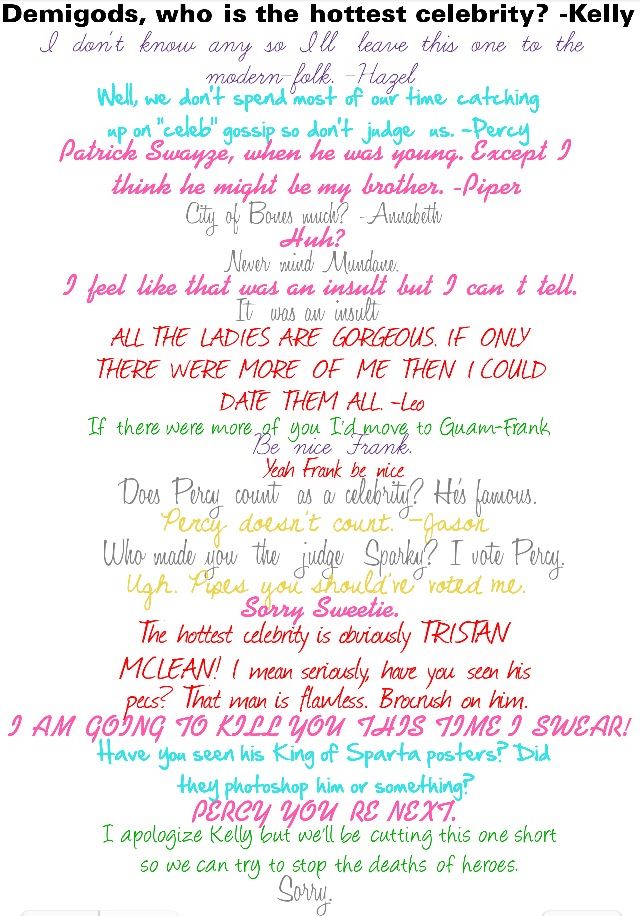 Demigods, who is the hottest celebrity? -Kelly
I don't know any so I'll leave this one to the
modern-folk. -Hazel
Well, we don't spend most of our time catching
up on "celeb" gossip so don't judge us. -Percy
Patrick Swayze, when he was young. Except I
think he might be my brother. -Piper
City of Bones much? -Annabeth
Huh?
Never mind Mundane.
I feel like that was an insult but I can t tell.
It was an insult
ALL THE LADIES ARE GORGEOUS. IF ONLY
THERE WERE MORE OF ME THEN I COULD
DATE THEM ALL. -Leo
If there were more of you I'd move to Guam-Frank
Be nice Frank.
Yeah Frank be nice
Does Percy count as a celebrity? He's famous.
Percy doesn't count. -Jason
Who made you the judge Sparky? I vote Percy.
Ugh. Pipes you should've voted me.
Sorry Sweetie.
The hottest celebrity is obviously TRISTAN
MCLEAN! I mean seriously, have you seen his
pecs? That man is flawless. Brocrush on him.
I AM GOING TO KILL YOU THIS TIME I SWEAR!
Have you seen his King of Sparta posters? Did
they photoshop him or something?
PERCY YOU RE NEXT.
I apologize Kelly but we'll be cutting this one short
so we can try to stop the deaths of heroes.
Sorry.